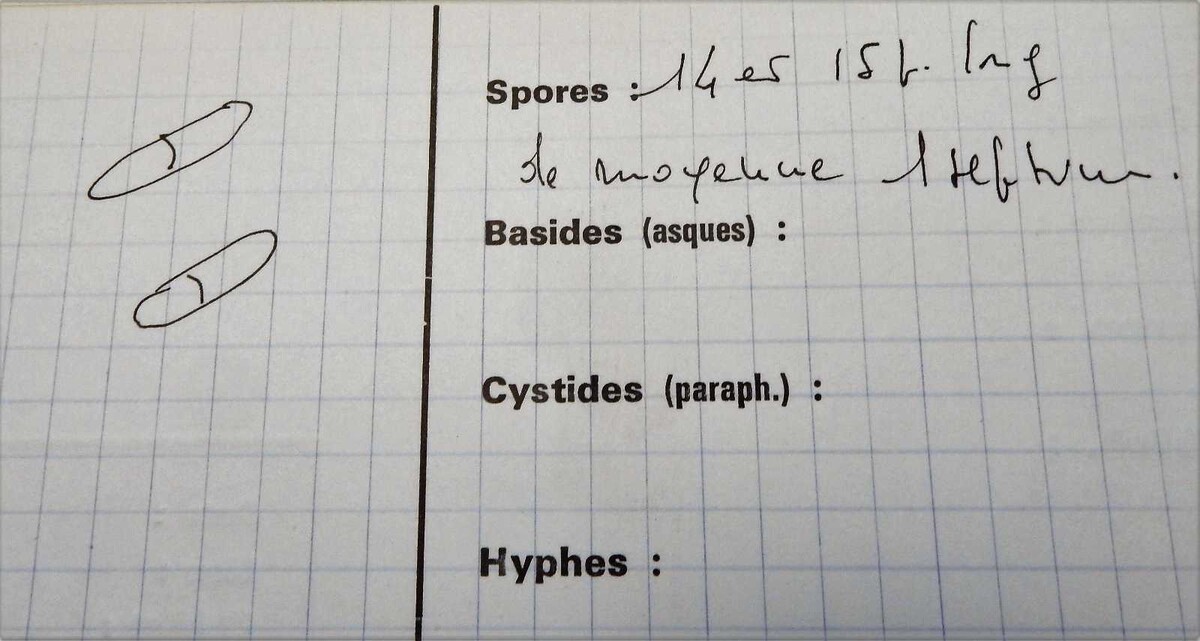 Spores : 14 et 15 µ. long
de moyenne 1 septum.
Basides (asques) :
Cystides (paraph.) :
Hyphes :